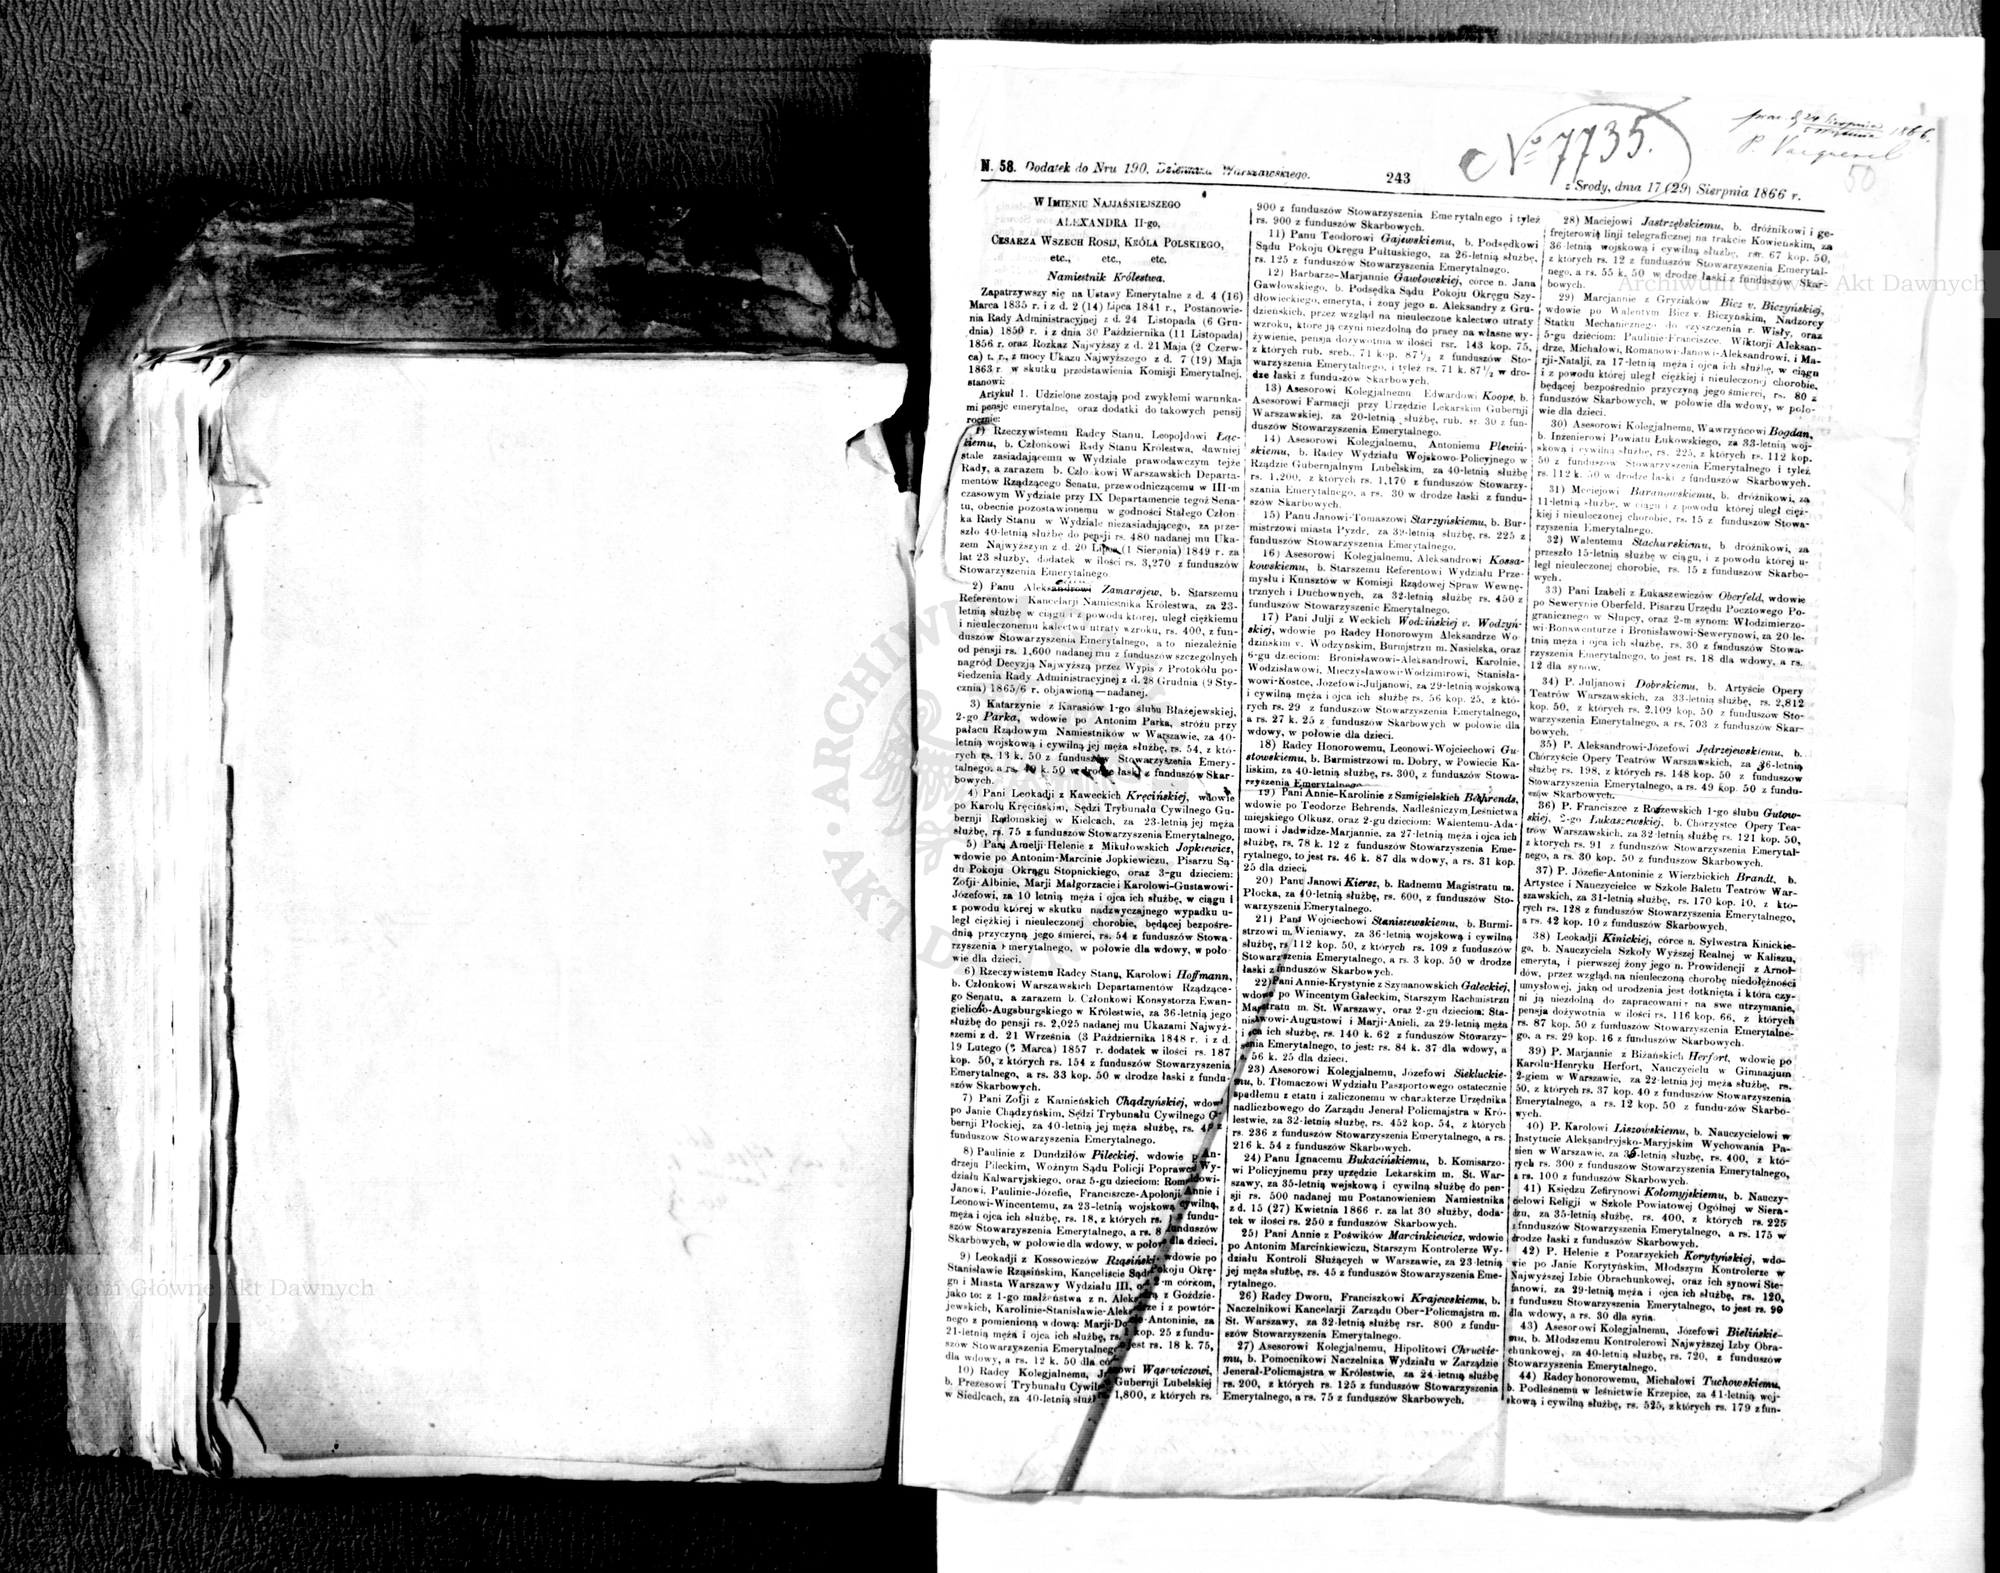 № 7735.
1866.
50
N. 58. Dodatek do Nru 190. Dziennika Warszawskiego.
243
z Środy, dnia 17 (29) Sierpnia 1866 r.
W Imieniu Najjaśniejszego
ALEXANDRA II-go,
Cesarza Wszech Rosij, Króla Polskiego,
etc., etc., etc.
Namiestnik Królestwa.
Zapatrzywszy się na Ustawy Emerytalne z d. 4 (16)
Marca 1835 r. i z d. 2 (14) Lipca 1841 r., Postanowie-
nia Rady Administracyjnej z d. 24 Listopada (6 Gru-
dnia) 1850 r. i z dnia 30 Października (11 Listopada)
1856 r. oraz Rozkaz Najwyższy z d. 21 Maja (2 Czerw-
ca) t. r., z mocy Ukazu Najwyższego z d. 7 (19) Maja
1863 r. w skutku przedstawienia Komisji Emerytalnej,
stanowi:
Artykuł 1. Udzielone zostają pod zwykłemi warunka-
mi pensje emerytalne, oraz dodatki do takowych pensij
rocznie:
1) Rzeczywistemu Radcy Stanu, Leopoldowi Łąc-
kiemu, b. Członkowi Rady Stanu Królestwa, dawniej
stale zasiadającemu w Wydziale prawodawczym tejże
Rady, a zarazem b. Członkowi Warszawskich Departa-
mentów Rządzącego Senatu, przewodniczącemu w III-m
czasowym Wydziale przy IX Departamencie tegoż Sena-
tu, obecnie pozostawionemu w godności Stałego Człon-
ka Rady Stanu w Wydziale niezasiadającego, za prze-
szło 40-letnią służbę do pensji rs. 480 nadanej mu Uka-
zem Najwyższym z d. 20 Lipca (1 Sierpnia) 1849 r. za
lat 23 służby, dodatek w ilości rs. 3,270 z funduszów
Stowarzyszenia Emerytalnego.
2) Panu Aleksandrowi Zamarajew, b. Starszemu
Referentowi Kancelarji Namiestnika Królestwa, za 23-
letnią służbę w ciągu i z powodu której, uległ ciężkiemu
i nieuleczonemu kalectwu utraty wzroku, rs. 400, z fun-
duszów Stowarzyszenia Emerytalnego, a to niezależnie
od pensji rs. 1,600 nadanej mu z funduszów szczególnych
nagród Decyzją Najwyższą przez Wypis z Protokółu po-
siedzenia Rady Administracyjnej z d. 28 Grudnia (9 Sty-
cznia) 1865/6 r. objawioną—nadanej.
3) Katarzynie z Karasiów 1-go ślubu Błażejewskiej,
2-go Parka, wdowie po Antonim Parka, stróżu przy
pałacu Rządowym Namiestników w Warszawie, za 40-
letnią wojskową i cywilną jej męża służbę, rs. 54, z któ-
rych rs. 13 k. 50 z funduszów Stowarzyszenia Emery-
talnego, a rs. 40 k. 50 w drodze łaski z funduszów Skar-
bowych.
4) Pani Leokadji z Kaweckich Kręcińskiej, wdowie
po Karolu Kręcińskim, Sędzi Trybunału Cywilnego Gu-
bernji Radomskiej w Kielcach, za 23-letnią jej męża
służbę, rs. 75 z funduszów Stowarzyszenia Emerytalnego.
5) Pani Amelji-Helenie z Mikułowskich Jopkiewicz,
wdowie po Antonim-Marcinie Jopkiewiczu, Pisarzu Są-
du Pokoju Okręgu Stopnickiego, oraz 3-gu dzieciem:
Zofji-Albinie, Marji Małgorzacie i Karolowi-Gustawowi-
Józefowi, za 10 letnią męża i ojca ich służbę, w ciągu i
z powodu której w skutku nadzwyczajnego wypadku u-
legł ciężkiej i nieuleczonej chorobie, będącej bezpośre-
dnią przyczyną jego śmierci, rs. 54 z funduszów Stowa-
rzyszenia Emerytalnego, w połowie dla wdowy, w poło-
wie dla dzieci.
6) Rzeczywistemu Radcy Stanu, Karolowi Hoffmann,
b. Członkowi Warszawskich Departamentów Rządzące-
go Senatu, a zarazem b. Członkowi Konsystorza Ewan-
gielicko-Augsburgskiego w Królestwie, za 36-letnią jego
służbę do pensji rs. 2,025 nadanej mu Ukazami Najwyż-
szemi z d. 21 Września (3 Października 1848 r. i z d.
19 Lutego (3 Marca) 1857 r. dodatek w ilości rs. 187
kop. 50, z których rs. 154 z funduszów Stowarzyszenia
Emerytalnego, a rs. 33 kop. 50 w drodze łaski z fundu-
szów Skarbowych.
7) Pani Zofji z Kamieńskich Chądzyńskiej, wdowie
po Janie Chądzyńskim, Sędzi Trybunału Cywilnego Gu-
bernji Płockiej, za 40-letnią jej męża służbę, rs. z
funduszow Stowarzyszenia Emerytalnego.
8) Paulinie z Dundziłów Pileckiej, wdowie po An-
drzeju Pileckim, Woźnym Sądu Policji Poprawczej Wy-
działu Kalwaryjskiego, oraz 5-gu dzieciem: Romualdowi-
Janowi, Paulinie-Józefie, Franciszce-Apolonji, Annie i
Leonowi-Wincentemu, za 23-letnią wojskową i cywilną,
męża i ojca ich służbę, rs. 18, z których rs. fundu-
szów Stowarzyszenia Emerytalnego, a rs. 8 funduszów
Skarbowych, w połowie dla wdowy, w połowie dla dzieci.
9) Leokadji z Kossowiczów Rząsińskiej, wdowie po
Stanisławie Rząsińskim, Kanceliście Sądu Pokoju Okrę-
gu i Miasta Warszawy Wydziału III, oraz 2-m córkom,
jako to: z 1-go małżeństwa z n. Aleksandrą z Goździe-
jewskich, Karolinie-Stanisławie-Aleksandrze i z powtór-
nego z pomienioną wdową: Marji-Do Antoninie, za
21-letnią męża i ojca ich służbę, rs. kop. 25 z fundu-
szów Stowarzyszenia Emerytalnego, to jest rs. 18 k. 75,
dla wdowy, a rs. 12 k. 50 dla córek.
10) Radcy Kolegjalnemu, owi Wąsowiczowi,
b. Prezesowi Trybunału Cywilnego Gubernji Lubelskiej
w Siedlcach, za 40-letnią służbę rs. 1,800, z których rs.
900 z funduszów Stowarzyszenia Emerytalnego i tyleż
rs. 900 z funduszów Skarbowych.
11) Panu Teodorowi Gajewskiemu, b. Podsędkowi
Sądu Pokoju Okręgu Pułtuskiego, za 26-letnią służbę,
rs. 125 z funduszów Stowarzyszenia Emerytalnego.
12) Barbarze-Marjannie Gawłowskiej, córce n. Jana
Gawłowskiego, b. Podsędka Sądu Pokoju Okręgu Szy-
dłowieckiego, emeryta, i żony jego n. Aleksandry z Gru-
dzienskich, przez wzgląd na nieuleczone kalectwo utraty
wzroku, które ją czyni niezdolną do pracy na własne wy-
żywienie, pensja dożywotnia w ilości rsr. 143 kop. 75,
z których rub. sreb. 71 kop. 87½ z funduszów Sto-
warzyszenia Emerytalnego, i tyleż rs. 71 k. 87½ w dro-
dze łaski z funduszów Skarbowych.
13) Asesorowi Kolegjalnemu Edwardowi Koope, b.
Asesorowi Farmacji przy Urzędzie Lekarskim Gubernji
Warszawskiej, za 20-letnią służbę, rub. sr. 30 z fun-
duszów Stowarzyszenia Emerytalnego.
14) Asesorowi Kolegjalnemu, Antoniemu Plewiń-
skiemu, b. Radcy Wydziału Wojskowo-Policyjnego w
Rządzie Gubernjalnym Lubelskim, za 40-letnią służbę
rs. 1,200, z których rs. 1,170 z funduszów Stowarzy-
szania Emerytalnego, a rs. 30 w drodze łaski z fundu-
szów Skarbowych.
15) Panu Janowi-Tomaszowi Starzyńskiemu, b. Bur-
mistrzowi miasta Pyzdr, za 39-letnią służbę, rs. 225 z
funduszów Stowarzyszenia Emerytalnego.
16) Asesorowi Kolegjalnemu, Aleksandrowi Kossa-
kowskiemu, b. Starszemu Referentowi Wydziału Prze-
mysłu i Kunsztów w Komisji Rządowej Spraw Wewnę-
trznych i Duchownych, za 32-letnią służbę rs. 450 z
funduszów Stowarzyszenie Emerytalnego.
17) Pani Julji z Weckich Wodzińskiej v. Wodzyń-
skiej, wdowie po Radcy Honorowym Aleksandrze Wo-
dzinskim v. Wodzyńskim, Burmistrzu m. Nasielska, oraz
6-gu dzieciom: Bronisławowi-Aleksandrowi, Karolnie,
Wodzisławowi, Mieczysławowi-Wodzimirowi, Stanisła-
wowi-Kostce, Józefowi-Juljanowi, za 29-letnią wojskową
i cywilną męża i ojca ich służbę rs. 56 kop. 25, z któ-
rych rs. 29 z funduszów Stowarzyszenia Emerytalnego,
a rs. 27 k. 25 z funduszów Skarbowych w połowie dla
wdowy, w połowie dla dzieci.
18) Radcy Honorowemu, Leonowi-Wojciechowi Gu-
stowskiemu, b. Burmistrzowi m. Dobry, w Powiecie Ka-
liskim, za 40-letnią służbę, rs. 300, z funduszów Stowa-
rzyszenia Emerytalnego.
19) Pani Annie-Karolinie z Szmigielskich Behrends,
wdowie po Teodorze Behrends, Nadleśniczym Leśnictwa
miejskiego Olkusz, oraz 2-gu dzieciom: Walentemu-Ada-
mowi i Jadwidze-Marjannie, za 27-letnią męża i ojca ich
służbę, rs. 78 k. 12 z funduszów Stowarzyszenia Eme-
rytalnego, to jest rs. 46 k. 87 dla wdowy, a rs. 31 kop.
25 dla dzieci.
20) Panu Janowi Kiersz, b. Radnemu Magistratu m.
Płocka, za 40-letnią służbę, rs. 600, z funduszów Sto-
warzyszenia Emerytalnego.
21) Panu Wojciechowi Staniszewskiemu, b. Burmi-
strzowi m. Wieniawy, za 36-letnią wojskową i cywilną
służbę, rs 112 kop. 50, z których rs. 109 z funduszów
Stowarzyszenia Emerytalnego, a rs. 3 kop. 50 w drodze
łaski z funduszów Skarbowych.
22) Pani Annie-Krystynie z Szymanowskich Gałeckiej,
wdowie po Wincentym Gałeckim, Starszym Rachmistrzu
Magistratu m. St. Warszawy, oraz 2-gu dzieciom: Sta-
nisławowi-Augustowi i Marji-Anieli, za 29-letnią męża
i ojca ich służbę, rs. 140 k. 62 z funduszów Stowarzy-
szenia Emerytalnego, to jest: rs. 84 k. 37 dla wdowy, a
56 k. 25 dla dzieci.
23) Asesorowi Kolegjalnemu, Józefowi Siekluckie-
mu, b. Tłomaczowi Wydziału Paszportowego ostatecznie
spadłemu z etatu i zaliczonemu w charakterze Urzędnika
nadliczbowego do Zarządu Jenerał Policmajstra w Kró-
lestwie, za 32-letnią służbę, rs. 452 kop. 54, z których
rs. 236 z funduszów Stowarzyszenia Emerytalnego, a rs.
216 k. 54 z funduszów Skarbowych.
24) Panu Ignacemu Bukacińskiemu, b. Komisarzo-
wi Policyjnemu przy urzędzie Lekarskim m. St. War-
szawy, za 35-letnią wojskową i cywilną służbę do pen-
sji rs. 500 nadanej mu Postanowieniem Namiestnika
z d. 15 (27) Kwietnia 1866 r. za lat 30 służby, doda-
tek w ilości rs. 250 z funduszów Skarbowych.
25) Pani Annie z Poświków Marcinkiewicz, wdowie
po Antonim Marcinkiewiczu, Starszym Kontrolerze Wy-
działu Kontroli Służących w Warszawie, za 23-letnią
jej męża służbę, rs. 45 z funduszów Stowarzyszenia Eme-
rytalnego.
26) Radcy Dworu, Franciszkowi Krajewskiemu, b.
Naczelnikowi Kancelarji Zarządu Ober-Policmajstra m.
St. Warszawy, za 32-letnią służbę rsr. 800 z fundu-
szów Stowarzyszenia Emerytalnego.
27) Asesorowi Kolegjalnemu, Hipolitowi Chruckie-
mu, b. Pomocnikowi Naczelnika Wydziału w Zarządzie
Jenerał-Policmajstra w Królestwie, za 24-letnią służbę
rs. 200, z których rs. 125 z funduszów Stowarzyszenia
Emerytalnego, a rs. 75 z funduszów Skarbowych.
28) Maciejowi Jastrzębskiemu, b. dróżnikowi i ge-
frejterowi linji telegraficznej na trakcie Kowieńskim, za
36-letnią wojskową i cywilną służbę, rsr. 67 kop. 50,
z których rs. 12 z funduszów Stowarzyszenia Emerytal-
nego, a rs. 55 k. 50 w drodze łaski z funduszów Skar-
bowych.
29) Marcjannie z Gryziaków Bicz v. Biczyńskiej,
wdowie po Walentym Bicz v. Biczyńskim, Nadzorcy
Statku Mechanicznego do czyszczenia r. Wisły, oraz
5-gu dzieciom: Paulinie-Franciszce, Wiktorji-Aleksan-
drze, Michałowi, Romanowi-Janowi-Aleksandrowi, i Ma-
rji-Natalji, za 17-letnią męża i ojca ich służbę, w ciągu
i z powodu której uległ ciężkiej i nieuleczonej chorobie,
będącej bezpośrednio przyczyną jego śmierci, rs. 80 z
funduszów Skarbowych, w połowie dla wdowy, w poło-
wie dla dzieci.
30) Asesorowi Kolegjalnemu, Wawrzyńcowi Bogdan,
b. Inżenierowi Powiatu Łukowskiego, za 33-letnią woj-
skową i cywilną służbę, rs. 225, z których rs. 112 kop.
50 z funduszów Stowarzyszenia Emerytalnego i tyleż
rs. 112 k. 50 w drodze łaski z funduszów Skarbowych.
31) Maciejowi Baranowskiemu, b. dróżnikowi, za
11-letnią służbę, w ciągu i z powodu której uległ cięż-
kiej i nieuleczonej chorobie, rs. 15 z funduszów Stowa-
rzyszenia Emerytalnego.
32) Walentemu Stachurskiemu, b dróżnikowi, za
przeszło 15-letnią służbę w ciągu, i z powodu której u-
legł nieuleczonej chorobie, rs. 15 z funduszów Skarbo-
wych.
33) Pani Izabeli z Łukaszewiczów Oberfeld, wdowie
po Sewerynie Oberfeld, Pisarzu Urzędu Pocztowego Po-
granicznego w Słupcy, oraz 2-m synom: Włodzimierzo-
wi-Bonawenturze i Bronisławowi-Sewerynowi, za 20-le-
tnią męża i ojca ich służbę, rs. 30 z funduszów Stowa-
rzyszenia Emerytalnego, to jest rs. 18 dla wdowy, a rs.
12 dla synów.
34) P. Juljanowi Dobrskiemu, b. Artyście Opery
Teatrów Warszawskich, za 33-letnią służbę, rs. 2,812
kop. 50, z których rs. 2,109 kop. 50 z funduszów Sto-
warzyszenia Emerytalnego, a rs. 703 z funduszów Skar-
bowych.
35) P. Aleksandrowi-Józefowi Jędrzejewskiemu, b.
Chórzyście Opery Teatrów Warszawskich, za 36-letnią
służbę rs. 198, z których rs. 148 kop. 50 z funduszów
Stowarzyszenia Emerytalnego, a rs. 49 kop. 50 z fundu-
szów Skarbowych.
36) P. Franciszce z Raszewskich 1-go ślubu Gutow-
skiej, 2-go Łukaszewskiej, b. Chorzystce Opery Tea-
trów Warszawskich, za 32-letnią służbę rs. 121 kop. 50,
z których rs. 91 z funduszów Stowarzyszenia Emerytal-
nego, a rs. 30 kop. 50 z funduszów Skarbowych.
37) P. Józefie-Antoninie z Wierzbickich Brandt, b.
Artystce i Nauczycielce w Szkole Baletu Teatrów War-
szawskich, za 31-letnią służbę, rs. 170 kop. 10, z któ-
rych rs. 128 z funduszów Stowarzyszenia Emerytalnego,
a rs. 42 kop. 10 z funduszów Skarbowych.
38) Leokadji Kinickiej, córce n. Sylwestra Kinickie-
go, b. Nauczyciela Szkoły Wyższej Realnej w Kaliszu,
emeryta, i pierwszej żony jego n. Prowidencji z Arnol-
dów, przez wzgląd na nieuleczoną chorobę niedołężności
umysłowej, jaką od urodzenia jest dotknięta i która czy-
ni ją niezdolną do zapracowania na swe utrzymanie,
pensja dożywotnia w ilości rs. 116 kop. 66, z których
rs. 87 kop. 50 z funduszów Stowarzyszenia Emerytalne-
go, a rs. 29 kop. 16 z funduszów Skarbowych.
39) P. Marjannie z Biżańskich Herfort, wdowie po
Karolu-Henryku Herfort, Nauczycielu w Gimnazjum
2-giem w Warszawie, za 22-letnią jej męża służbę, rs.
50, z których rs. 37 kop. 40 z funduszów Stowarzyszenia
Emerytalnego, a rs. 12 kop. 50 z funduszów Skarbo-
wych.
40) P. Karolowi Liszowskiemu, b. Nauczycielowi w
Instytucie Aleksandryjsko-Maryjskim Wychowania Pa-
nien w Warszawie, za 35-letnią służbę, rs. 400, z któ-
rych rs. 300 z funduszów Stowarzyszenia Emerytalnego,
a rs. 100 z funduszów Skarbowych.
41) Księdzu Zefirynowi Kołomyjskiemu, b. Nauczy-
cielowi Religji w Szkole Powiatowej Ogólnej w Siera-
dzu, za 35-letnią służbę, rs. 400, z których rs. 225
z funduszów Stowarzyszenia Emerytalnego, a rs. 175 w
drodze łaski z funduszów Skarbowych.
42) P. Helenie z Pozarzyckich Korytyńskiej, wdo-
wie po Janie Korytyńskim, Młodszym Kontrolerze w
Najwyższej Izbie Obrachunkowej, oraz ich synowi Ste-
fanowi, za 29-letnią męża i ojca ich służbę, rs. 120,
z funduszu Stowarzyszenia Emerytalnego, to jest rs. 90
dla wdowy, a rs. 30 dla syna.
43) Asesorowi Kolegjalnemu, Józefowi Bielińskie-
mu, b. Młodszemu Kontrolerowi Najwyższej Izby Obra-
chunkowej, za 40-letnią służbę, rs. 720, z funduszów
Stowarzyszenia Emerytalnego.
44) Radcy honorowemu, Michałowi Tuchowskiemu,
b. Podleśnemu w leśnictwie Krzepice, za 41-letnią woj-
skową i cywilną służbę, rs. 525, z których rs. 179 z fun-
Archiwum Główne Akt Dawnych
Archiwum Główne Akt Dawnych
ARCHIWUM
AKT DAWNYCH